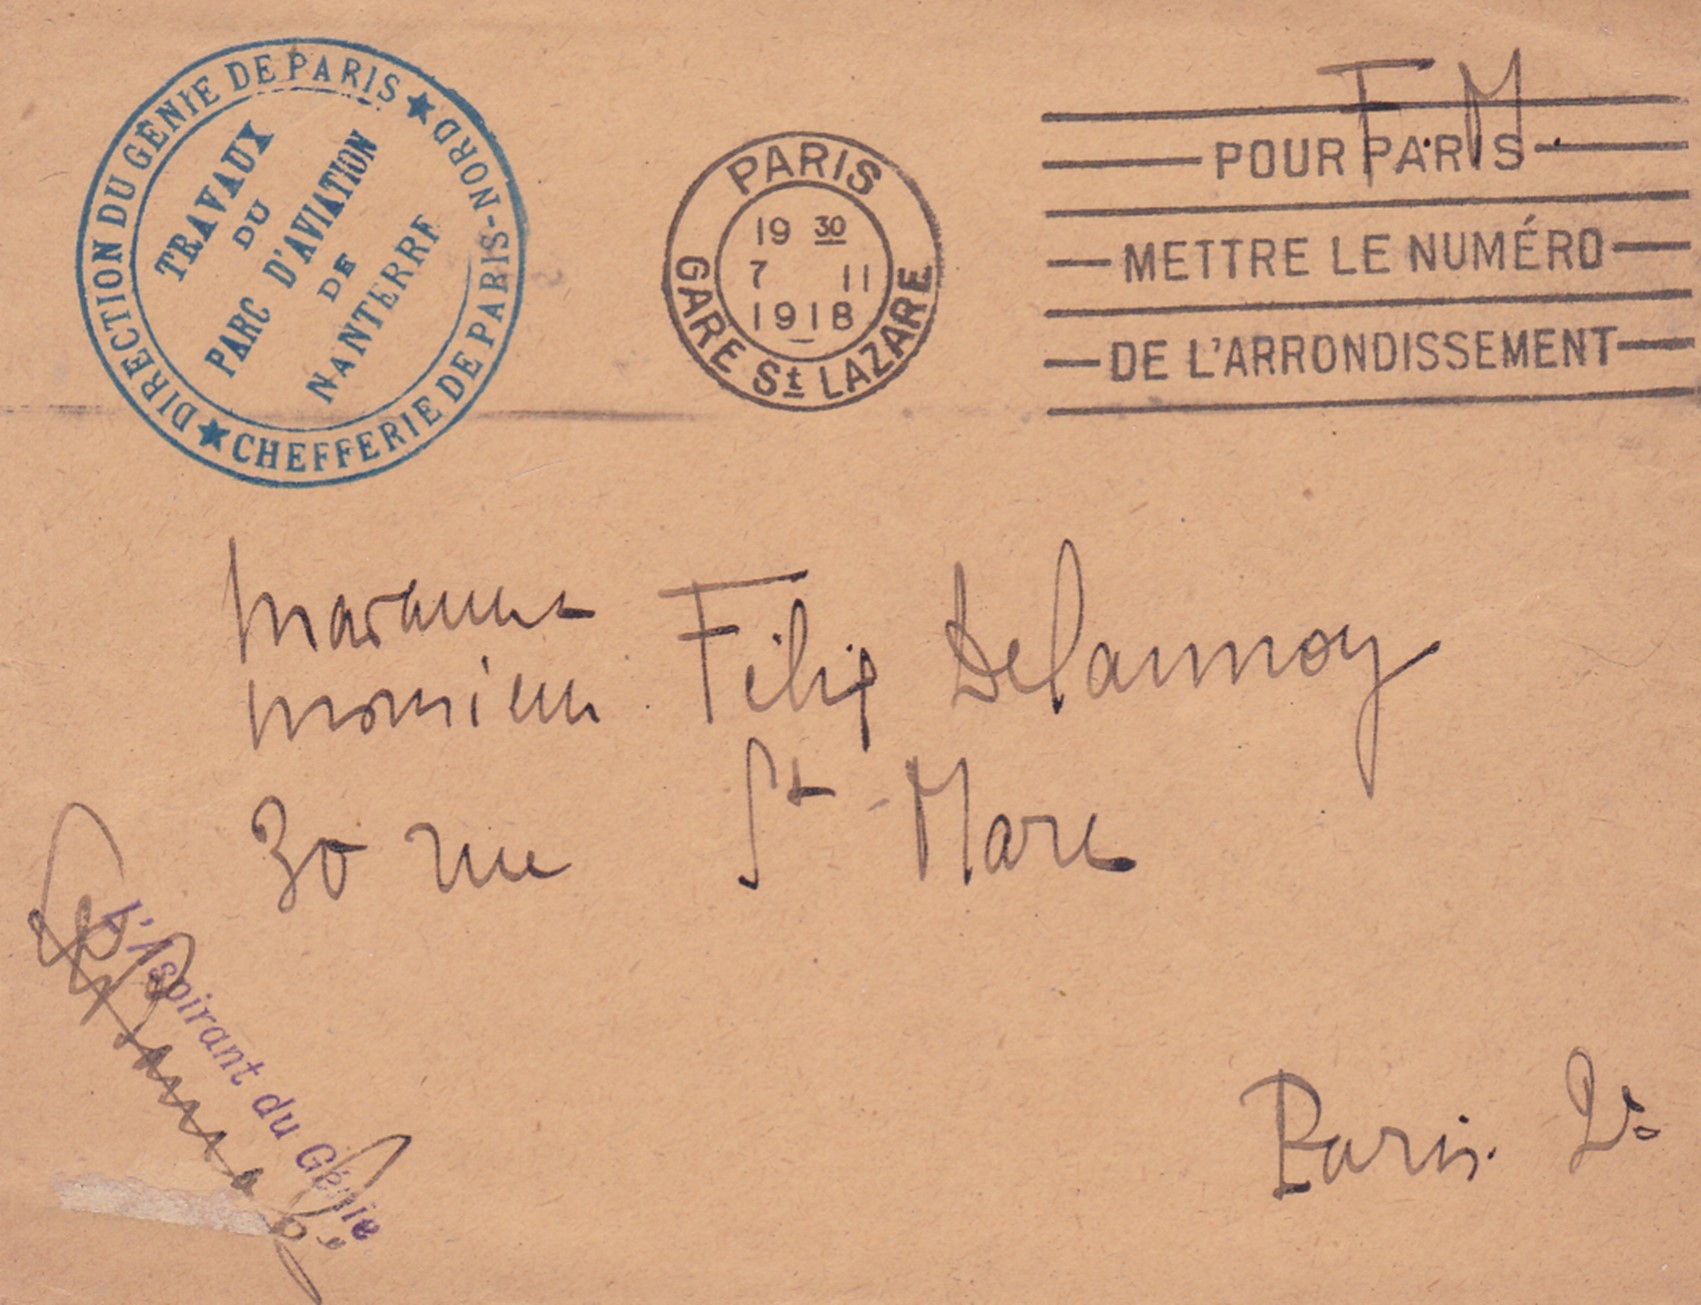 DIRECTION DU GÉNIE DE PARIS ★ CHEFFERIE DE PARIS-NORD ★
TRAVAUX
DU
PARC D'AVIATION
DE
NANTERRE
PARIS
19 30
7 11
1918
GARE St LAZARE
F. M.
POUR PARIS
METTRE LE NUMÉRO
DE L'ARRONDISSEMENT
Madame
Monsieur Félix Delannoy
30 rue St Marc
Paris. 2e
L'Aspirant du Génie